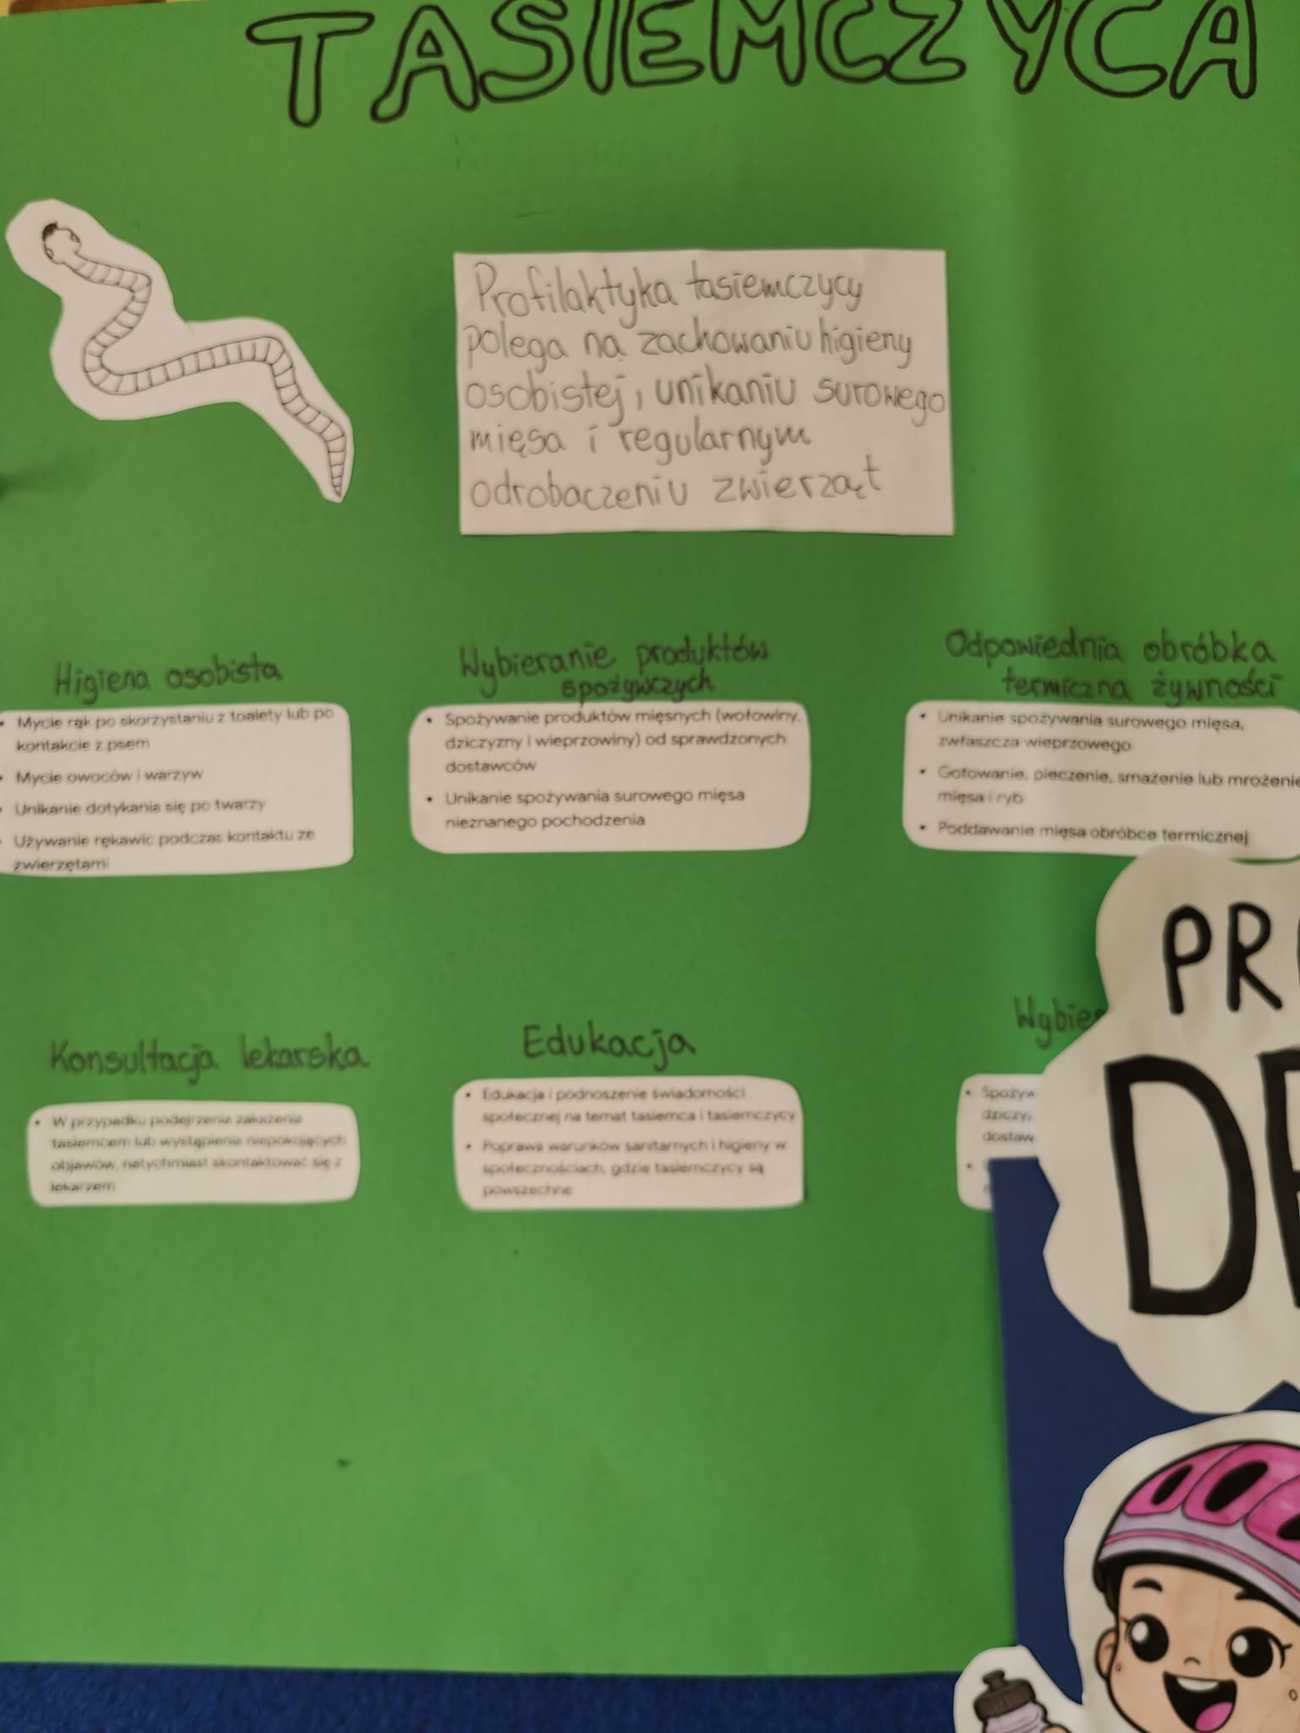 TASIEMCZYCA
Profilaktyka tasiemczycy
polega na zachowaniu higieny
osobistej, unikaniu surowego
mięsa i regularnym
odrobaczeniu zwierząt
Higiena osobista
• Mycie rąk po skorzystaniu z toalety lub po
kontakcie z psem
• Mycie owoców i warzyw
• Unikanie dotykania się po twarzy
• Używanie rękawic podczas kontaktu ze
zwierzętami
Wybieranie produktów
spożywczych
• Spożywanie produktów mięsnych (wołowiny,
dziczyzny i wieprzowiny) od sprawdzonych
dostawców
• Unikanie spożywania surowego mięsa
nieznanego pochodzenia
Odpowiednia obróbka
termiczna żywności
• Unikanie spożywania surowego mięsa,
zwłaszcza wieprzowego
• Gotowanie, pieczenie, smażenie lub mrożenie
mięsa i ryb
• Poddawanie mięsa obróbce termicznej
Konsultacja lekarska
• W przypadku podejrzenia zakażenia
tasiemcem lub wystąpienia niepokojących
objawów, natychmiast skontaktować się z
lekarzem
Edukacja
• Edukacja i podnoszenie świadomości
społecznej na temat tasiemca i tasiemczycy
• Poprawa warunków sanitarnych i higieny w
społecznościach, gdzie tasiemczycy są
powszechne
Wybier
• Spożyw
dziczy
dostaw
PR
D